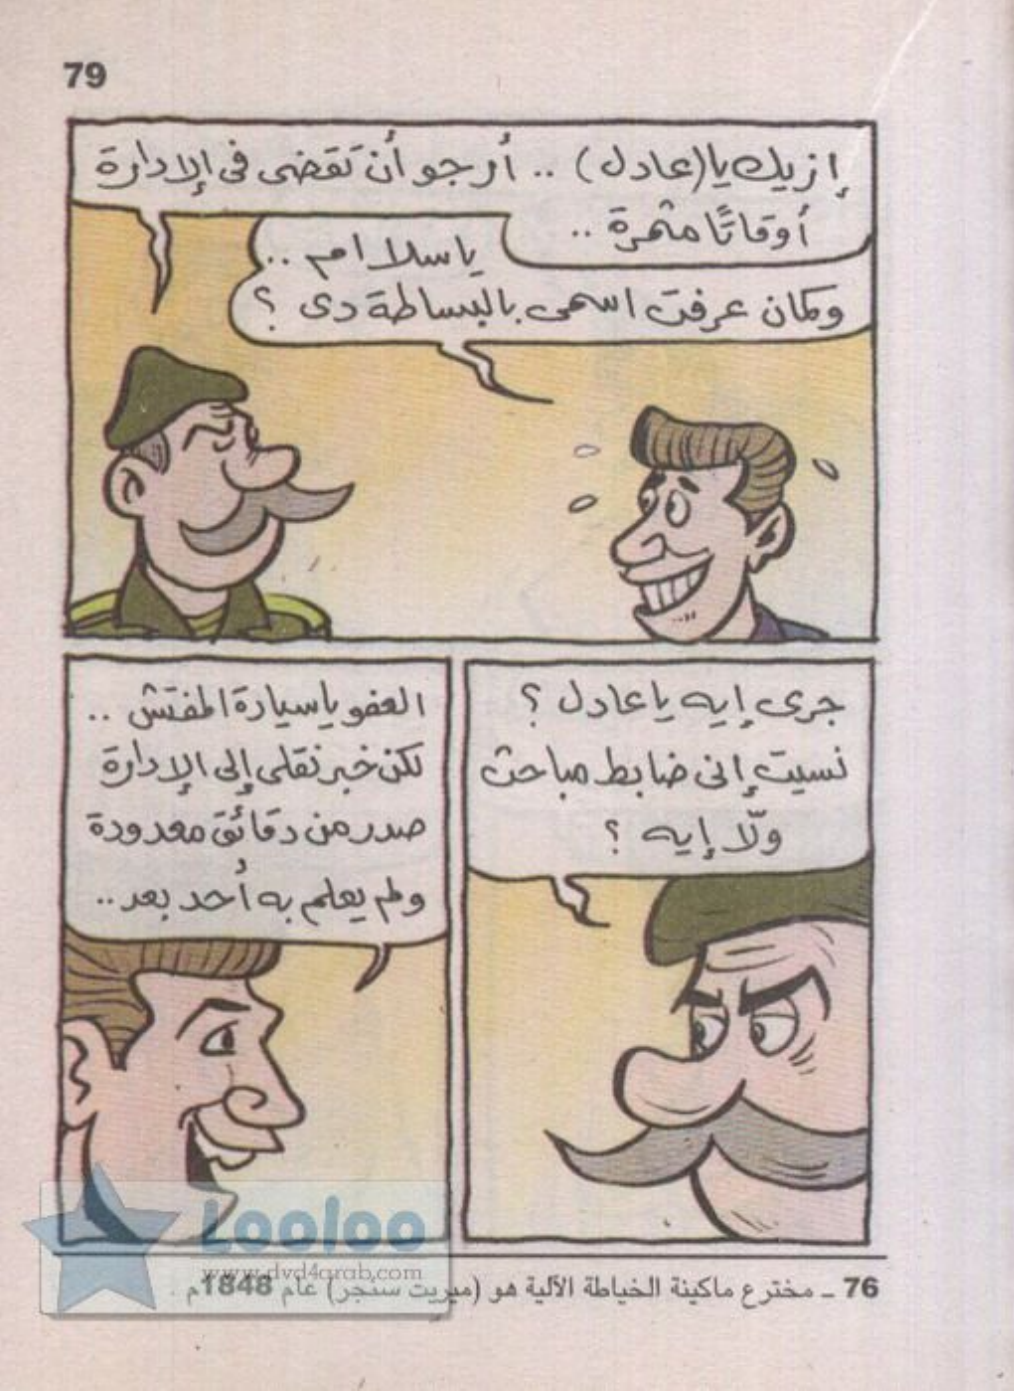 79
إزيك يا (عادل) .. أرجو أن تقضى فى الإدارة
أوقاتًا مثمرة ..
يا سلا ام ..
وكمان عرفت اسمى بالبساطة دى ؟
جرى إيه يا عادل ؟
نسيت إنى ضابط مباحث
ولّا إيه ؟
العفو يا سيادة المفتش ..
لكن خبر نقلى إلى الإدارة
صدر من دقائق معدودة
ولم يعلم به أحد بعد ..
Looloo
www.dvd4arab.com
76 ـ مخترع ماكينة الخياطة الآلية هو (ميريت سنجر) عام 1848م .